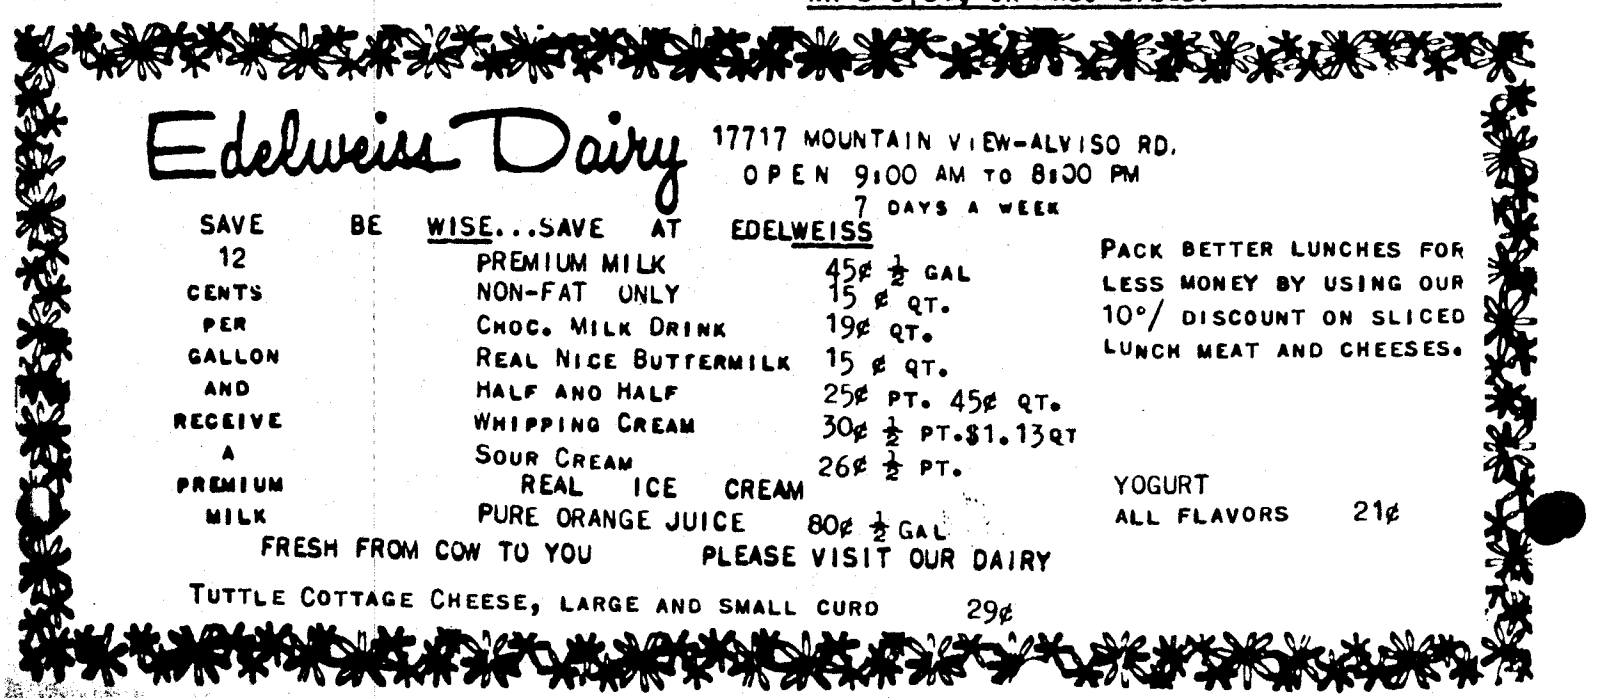 Edelweiss Dairy
17717 MOUNTAIN VIEW-ALVISO RD.
OPEN 9:00 AM TO 8:00 PM
7 DAYS A WEEK
BE WISE...SAVE AT EDELWEISS
SAVE
12
CENTS
PER
GALLON
AND
RECEIVE
A
PREMIUM
MILK
PREMIUM MILK 45¢ ½ GAL
NON-FAT ONLY 15 ¢ QT.
CHOC. MILK DRINK 19¢ QT.
REAL NICE BUTTERMILK 15 ¢ QT.
HALF AND HALF 25¢ PT. 45¢ QT.
WHIPPING CREAM 30¢ ½ PT.$1.13QT
SOUR CREAM 26¢ ½ PT.
REAL ICE CREAM
PURE ORANGE JUICE 80¢ ½ GAL
PACK BETTER LUNCHES FOR
LESS MONEY BY USING OUR
10°/ DISCOUNT ON SLICED
LUNCH MEAT AND CHEESES.
YOGURT
ALL FLAVORS 21¢
FRESH FROM COW TO YOU PLEASE VISIT OUR DAIRY
TUTTLE COTTAGE CHEESE, LARGE AND SMALL CURD 29¢